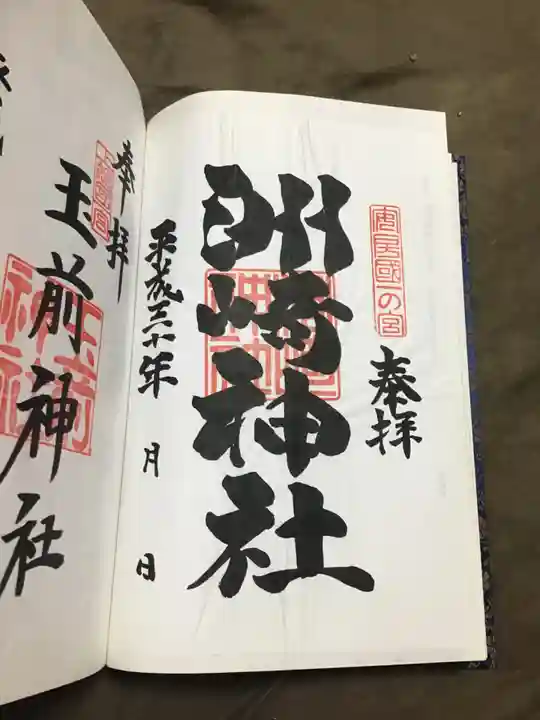 安房國一の宮
奉拝
洲崎神社
平成三十年 月 日
奉拝
玉前神社